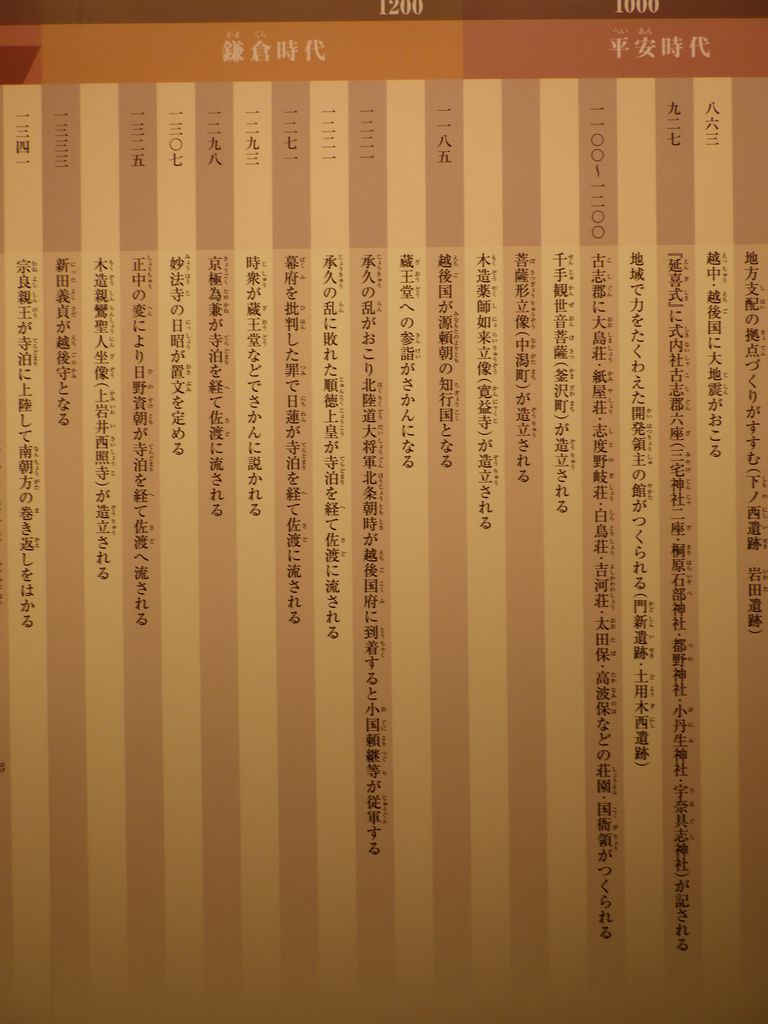 1000
1200
平安時代
鎌倉時代
地方支配の拠点づくりがすすむ(下ノ西遺跡 岩田遺跡)
八六三 越中・越後国に大地震がおこる
九二七 『延喜式』に式内社古志郡六座(三宅神社二座・桐原石部神社・都野神社・小丹生神社・宇奈具志神社)が記される
地域で力をたくわえた開発領主の館がつくられる(門新遺跡・土用木西遺跡)
一一〇〇~一二〇〇 古志郡に大島荘・紙屋荘・志度野岐荘・白鳥荘・吉河荘・太田保・高波保などの荘園・国衙領がつくられる
千手観世音菩薩(釜沢町)が造立される
菩薩形立像(中潟町)が造立される
木造薬師如来立像(寛益寺)が造立される
一一八五 越後国が源頼朝の知行国となる
蔵王堂への参詣がさかんになる
一二二一 承久の乱がおこり北陸道大将軍北条朝時が越後国府に到着すると小国頼継等が従軍する
一二二一 承久の乱に敗れた順徳上皇が寺泊を経て佐渡に流される
一二七一 幕府を批判した罪で日蓮が寺泊を経て佐渡に流される
一二九三 時衆が蔵王堂などでさかんに説かれる
一二九八 京極為兼が寺泊を経て佐渡に流される
一三〇七 妙法寺の日昭が置文を定める
一三二五 正中の変により日野資朝が寺泊を経て佐渡へ流される
木造親鸞聖人坐像(上岩井西照寺)が造立される
一三三三 新田義貞が越後守となる
一三四一 宗良親王が寺泊に上陸して南朝方の巻き返しをはかる